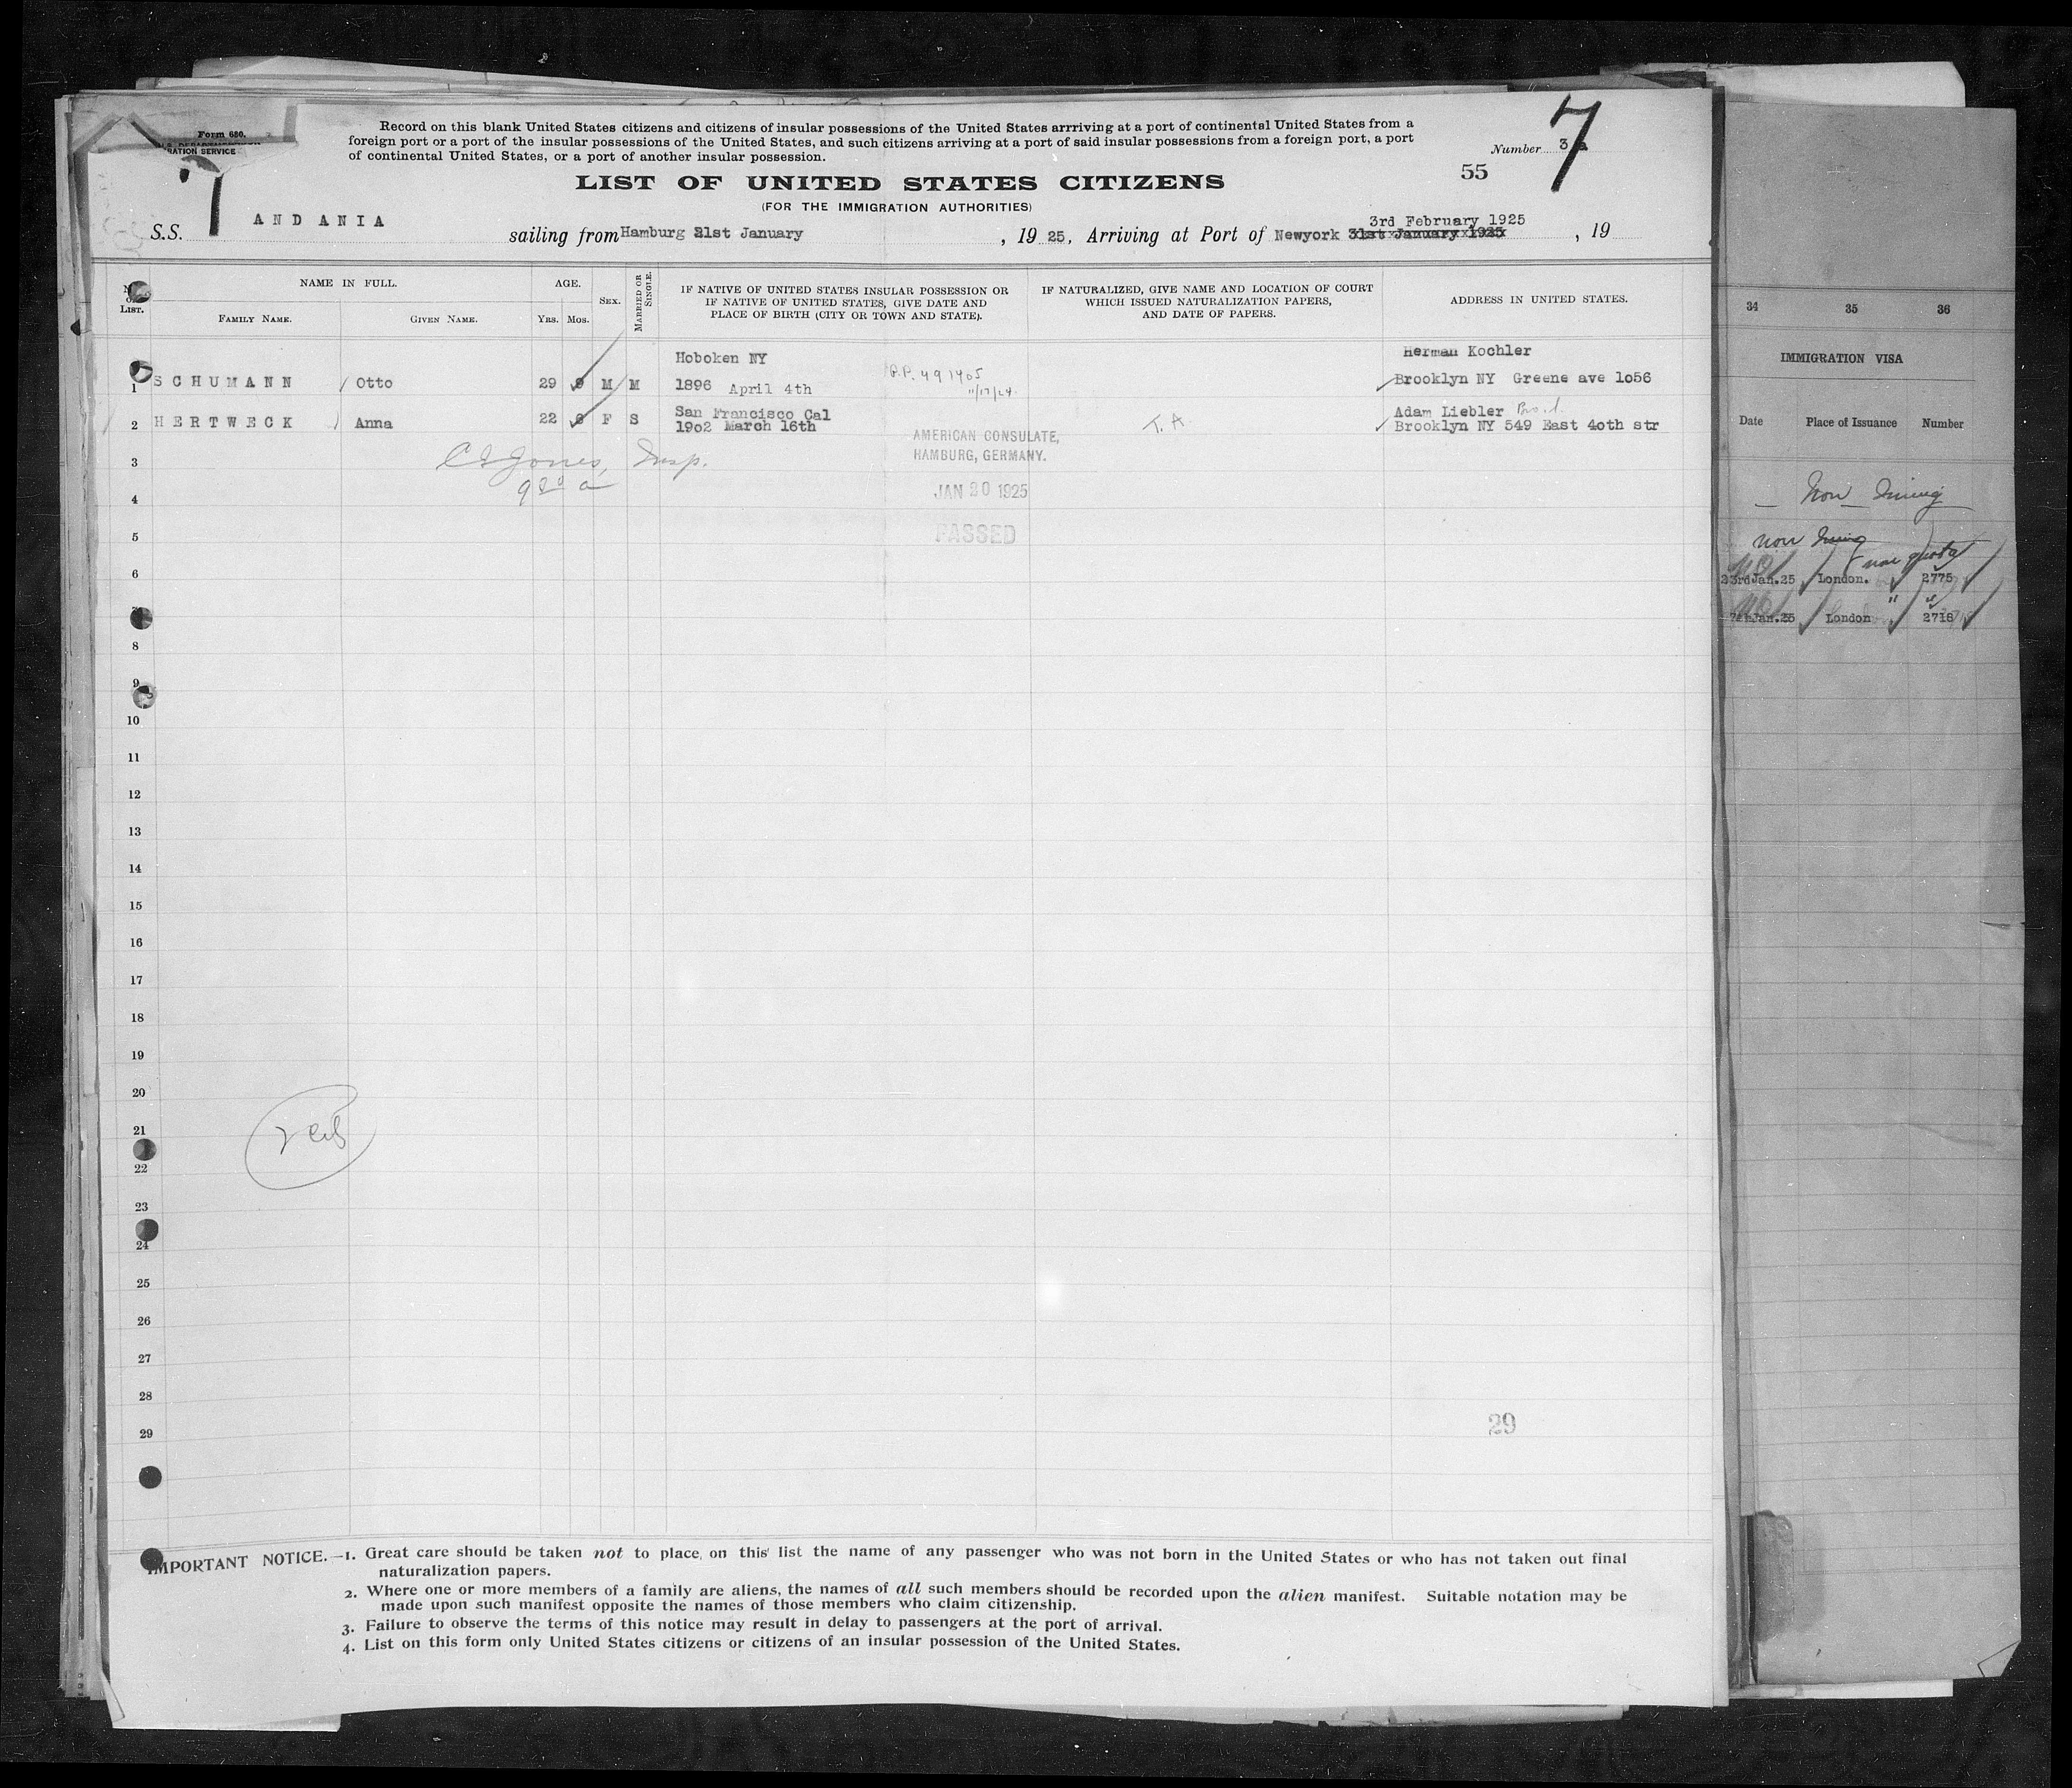 Form 680.
RATION SERVICE
Record on this blank United States citizens and citizens of insular possessions of the United States arrriving at a port of continental United States from a
foreign port or a port of the insular possessions of the United States, and such citizens arriving at a port of said insular possessions from a foreign port, a port
of continental United States, or a port of another insular possession.
Number 3
7
55
LIST OF UNITED STATES CITIZENS
(FOR THE IMMIGRATION AUTHORITIES)
3rd February 1925
S.S. ANDANIA sailing from Hamburg 21st January, 19 25, Arriving at Port of Newyork 31st January 1925, 19
No. on List.
NAME IN FULL.
Family Name.
Given Name.
AGE.
Yrs.
Mos.
Sex.
Married or Single.
IF NATIVE OF UNITED STATES INSULAR POSSESSION OR
IF NATIVE OF UNITED STATES, GIVE DATE AND
PLACE OF BIRTH (CITY OR TOWN AND STATE).
IF NATURALIZED, GIVE NAME AND LOCATION OF COURT
WHICH ISSUED NATURALIZATION PAPERS,
AND DATE OF PAPERS.
ADDRESS IN UNITED STATES.
Hoboken NY
Herman Kochler
P.P. 491405
11/17/24
1 SCHUMANN Otto 29 9 M M 1896 April 4th Brooklyn NY Greene ave 1o56
San Francisco Cal
Adam Liebler
2 HERTWECK Anna 22 S F S 19o2 March 16th T.A. Brooklyn NY 549 East 4oth str
AMERICAN CONSULATE,
HAMBURG, GERMANY.
3 Jones, Insp.
9 30 a
JAN 20 1925
4
PASSED
5
6
8
9
10
11
12
13
14
15
16
17
18
19
20
21
22
23
24
25
26
27
28
29
29
IMPORTANT NOTICE.—1. Great care should be taken not to place on this list the name of any passenger who was not born in the United States or who has not taken out final
naturalization papers.
2. Where one or more members of a family are aliens, the names of all such members should be recorded upon the alien manifest. Suitable notation may be
made upon such manifest opposite the names of those members who claim citizenship.
3. Failure to observe the terms of this notice may result in delay to passengers at the port of arrival.
4. List on this form only United States citizens or citizens of an insular possession of the United States.
34 35 36
IMMIGRATION VISA
Date Place of Issuance Number
Non
non
non quota
23rdJan.25 London. 2775
7thJan.25 London " 2718